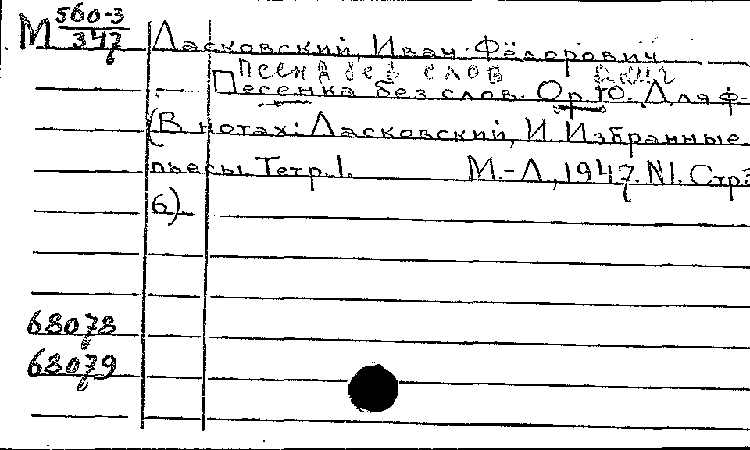 М 560-3
347
Ласковский, Иван Фёдорович
Песня без слов
Песенка без слов. Ор. 10. Для ф-
(В нотах: Ласковский, И. Избранные
пьесы. Тетр. 1. М.-Л., 1947. №1. Стр3
6)
68078
68079